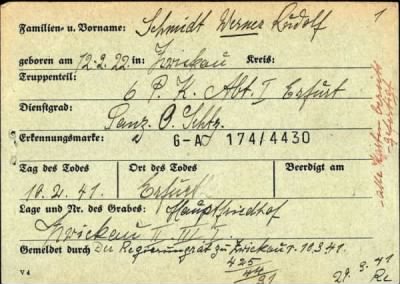 1
Familien- u. Vorname: Schmidt Werner Rudolf
geboren am 12.2.22. in: Zwickau Kreis:
Truppenteil:
6 P. K. Abt. I Erfurt
Dienstgrad:
Panz. O. Schtz.
Erkennungsmarke: G-A 174/4430
Tag des Todes Ort des Todes Beerdigt am
10.2.41. Erfurt
Lage und Nr. des Grabes: Hauptfriedhof
Zwickau II
Gemeldet durch Der Regierungsrat zu Zwickau v. 10.3.41.
425
V 4
41